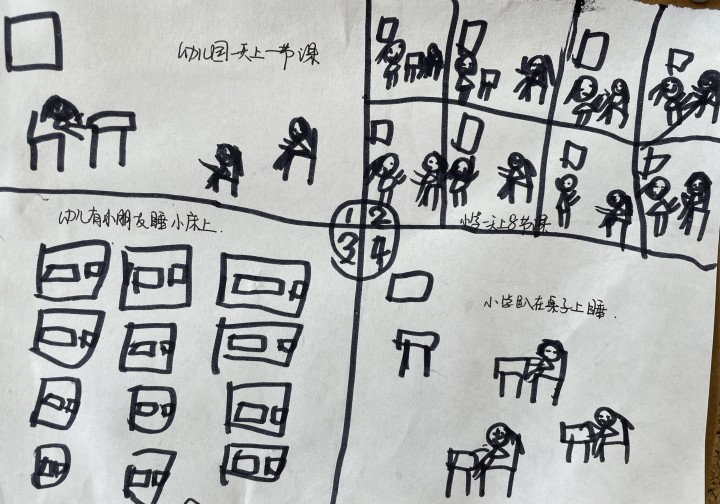 幼儿园一天上一节课
1 2
3 4
幼儿有小朋友睡小床上.
小学一天上8节课
小学趴在桌子上睡.